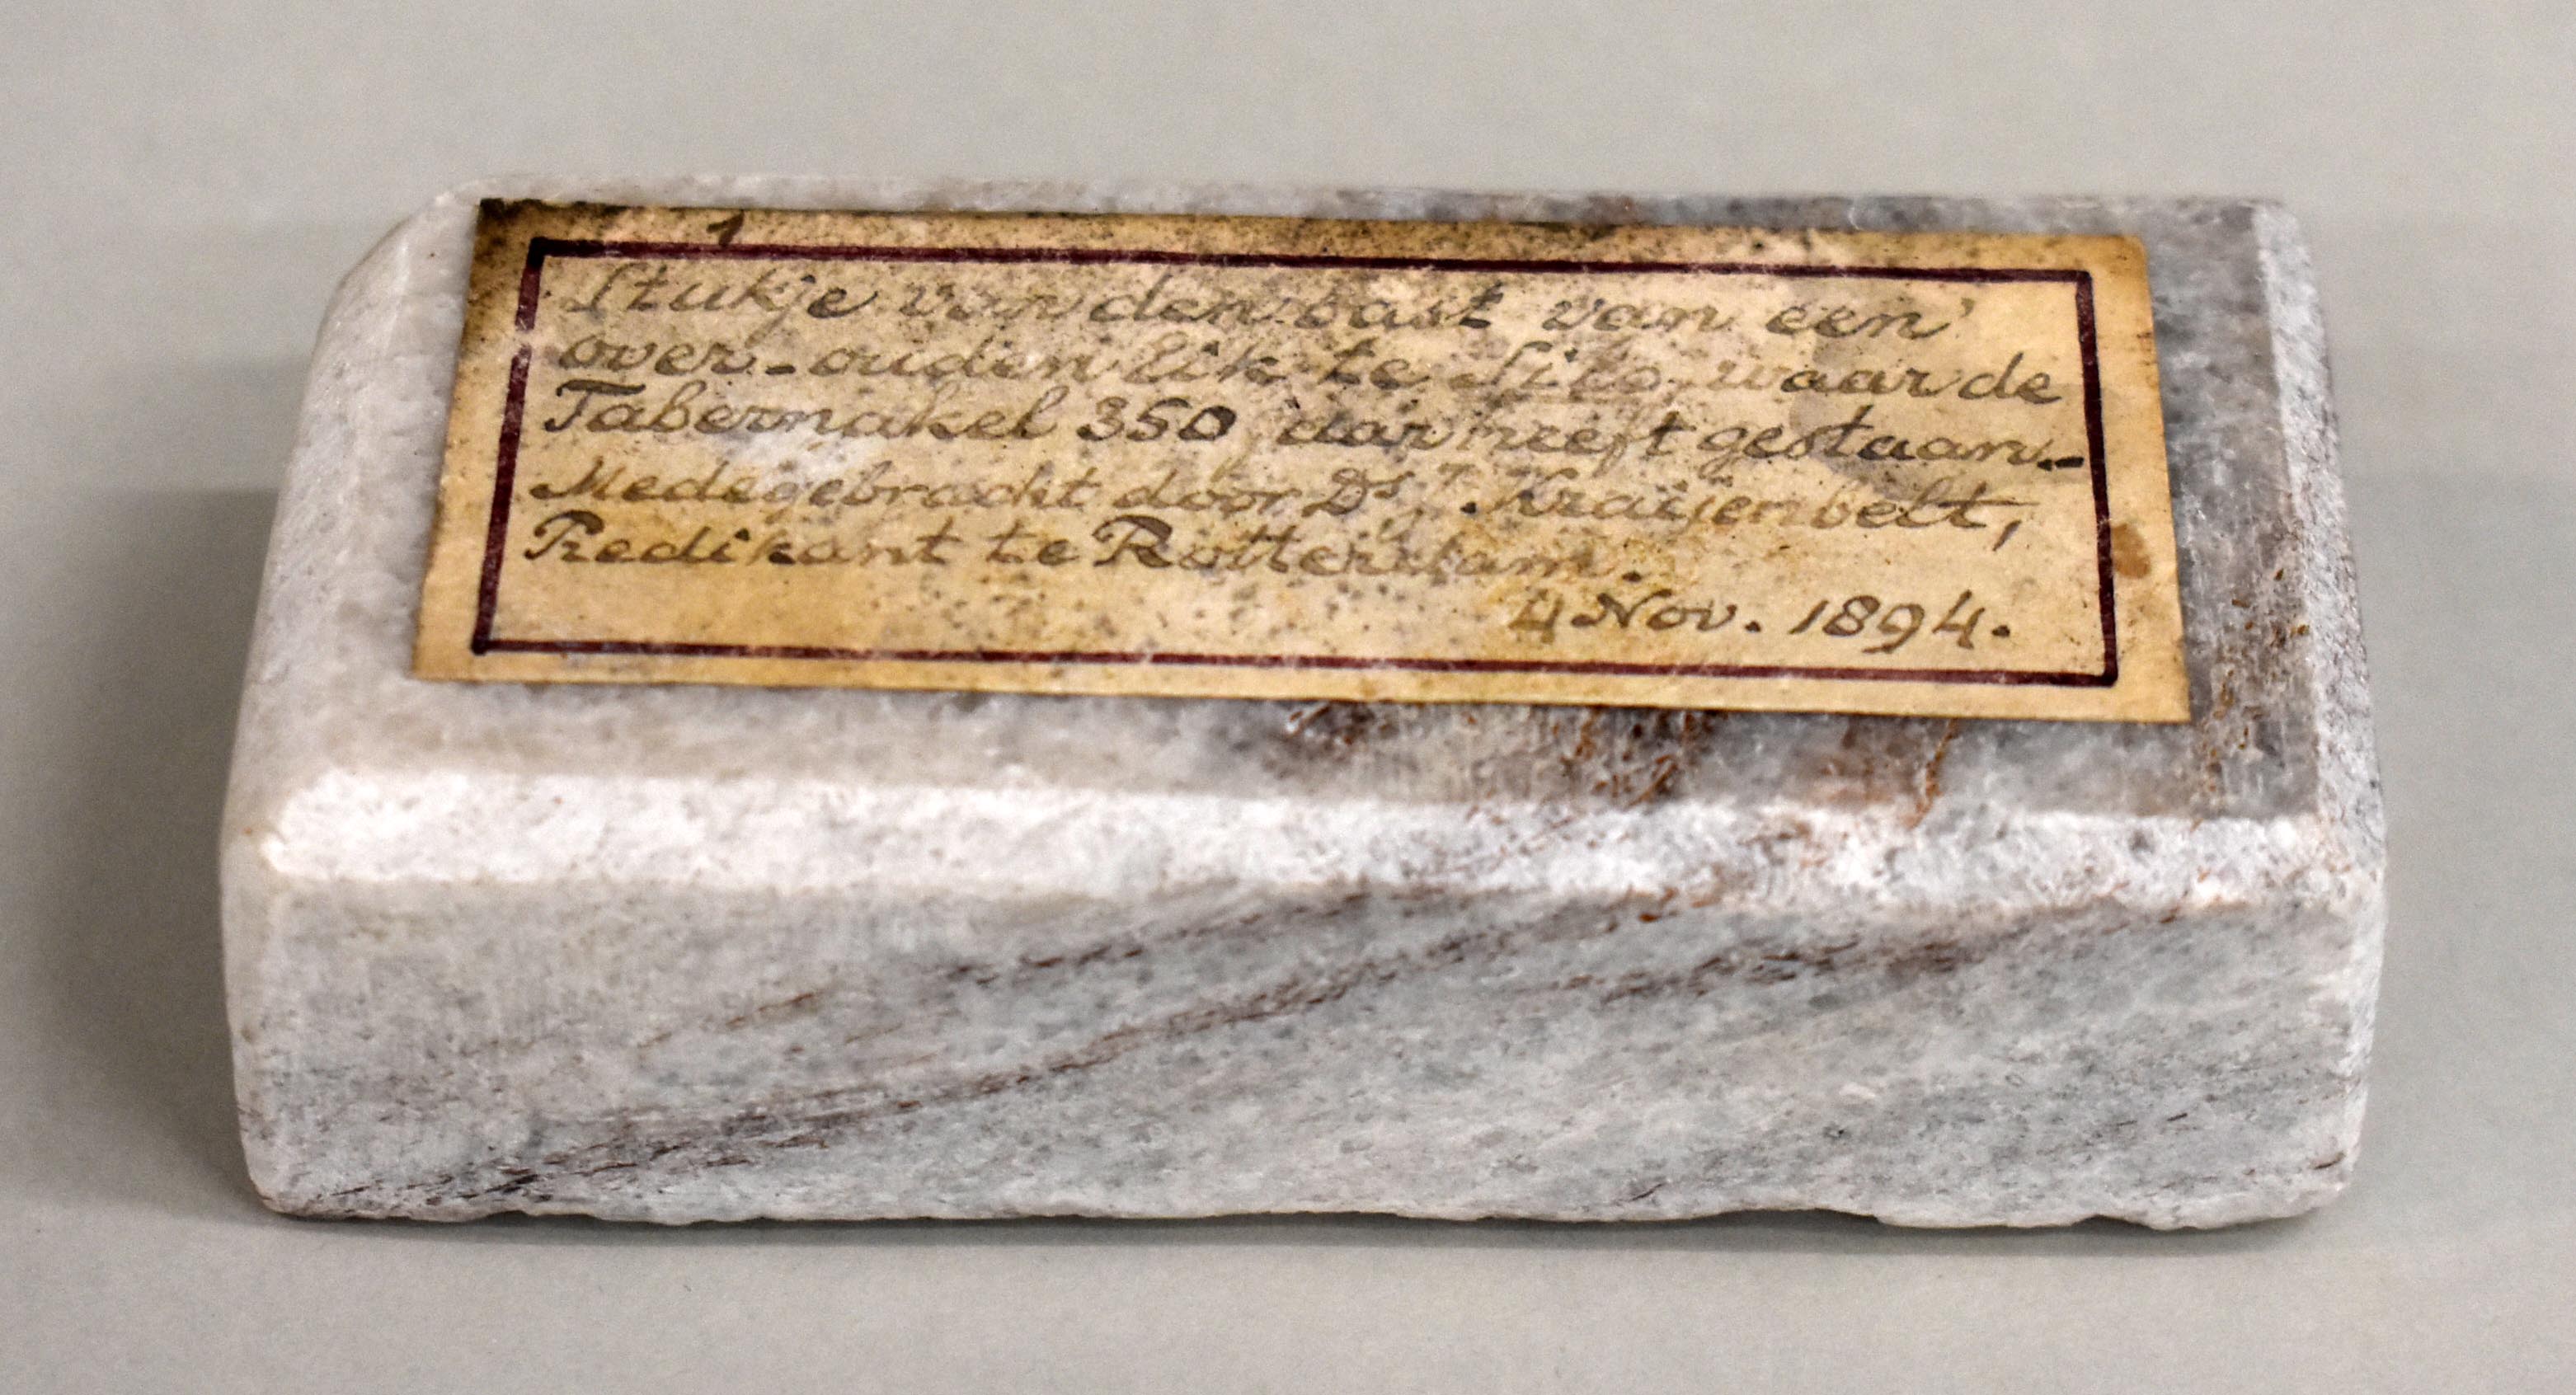 1
Stukje van den bast van een'
over-ouden Eik te Silo, waar de
Tabernakel 350 jaar heeft gestaan.-
Medegebracht door Ds J. Kraijenbelt,
Predikant te Rotterdam.
4 Nov. 1894.